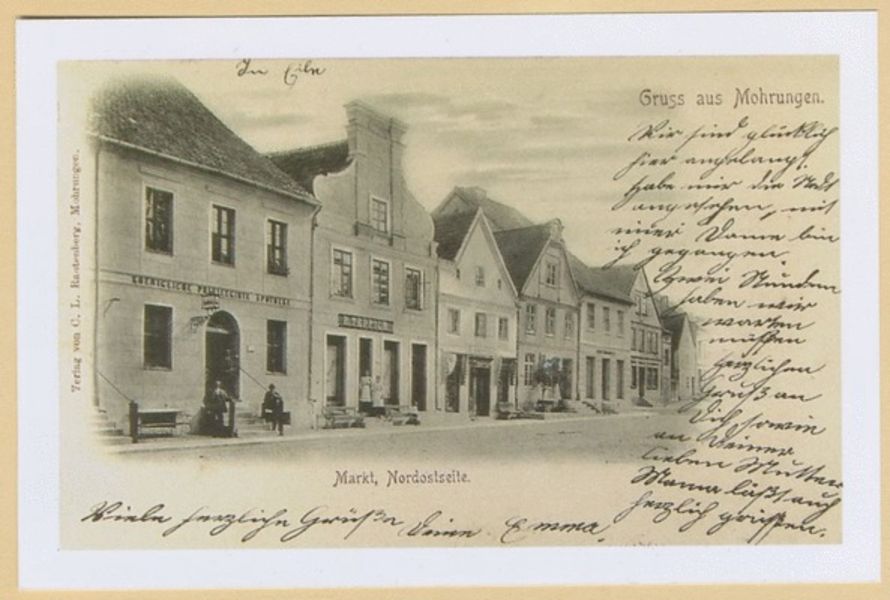 In Eile
Gruss aus Mohrungen.
Wir sind glücklich
hier angelangt.
Habe mir die Stadt
angesehen, mit
einer Dame bin
ich gegangen.
Zwei Stunden
haben wir
warten
müssen
Herzlichen
Gruß an
Dich sowie
an Deiner
lieben Mutter
Mama läßt auch
herzlich grüßen.
Verlag von C. L. Rautenberg, Mohrungen.
KOENIGLICHE PRIVILEGIRTE APOTHEKE
Markt, Nordostseite.
Viele herzliche Grüße Deine Emma.